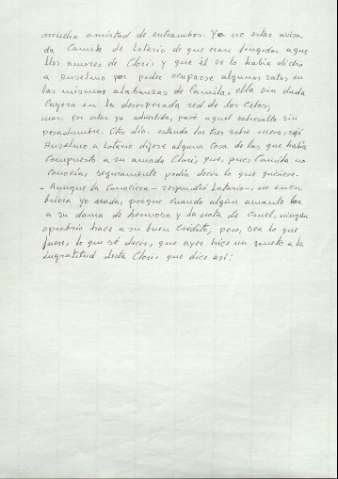 mucha amistad de entrambos. Ya no estar avisa
da Camila de Lotario de que eran fingidos aque
llos amores de Cloris y que él se lo había dicho
a Anselmo por poder ocuparse algunos ratos en
las mismas alabanzas de Camila, ella sin duda
cayera en la desesperada red de los celos;
mas por estar ya advertida, pasó aquel sobresalto sin
pesadumbre. Otro día, estando los tres sobre mesa, rogó
Anselmo a Lotario dijese alguna cosa de las que había
compuesto a su amada Cloris que, pues Camila no
conocía, seguramente podía decir lo que quisiese.
- Aunque la conociera - respondió Lotario -, no encu
briera yo nada, porque cuando algún amante loa
a su dama de hermosa y la nota de cruel, ningún
oprobrio hace a su buen crédito; pero, sea lo que
fuere, lo que sé decir, que ayer hice un soneto a la
ingratitud desta Cloris que dice así: